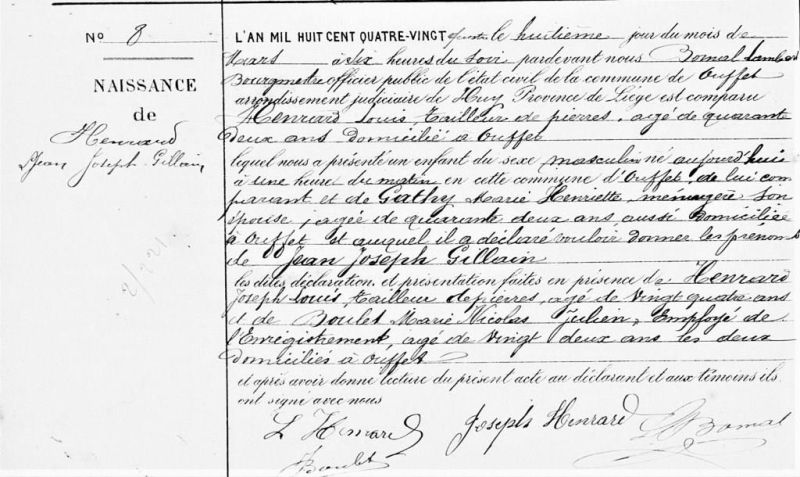 No 8
NAISSANCE
de
Henrard
Jean Joseph Gillain
L'AN MIL HUIT CENT QUATRE-VINGT quatre le huitième jour du mois de
Mars à six heures du soir pardevant nous Bomal Lambert
Bourgmestre officier public de l'état civil de la commune de Ouffet
arrondissement judiciaire de Huy Province de Liège est comparu
Henrard Louis, tailleur de pierres, agé de quarante
deux ans domicilié à Ouffet
lequel nous a présenté un enfant du sexe masculin né aujourd'huie
à une heure du matin en cette commune d'Ouffet, de lui com
parant et de Gathy Marie Henriette, ménagère son
épouse, agée de quarante deux ans, aussi domiciliée
à Ouffet et auquel il a déclaré vouloir donner les prénoms
de Jean Joseph Gillain
les dites déclaration et présentation faites en présence de Henrard
Joseph Louis, tailleur de pierres, agé de vingt quatre ans
et de Boulet Marie Nicolas Julien, Employé de
l'Enregistrement, agé de vingt deux ans les deux
domiciliés à Ouffet
et après avoir donné lecture du présent acte au déclarant et aux témoins ils
ont signé avec nous
L Henrard Joseph Henrard L Bomal
Boulet